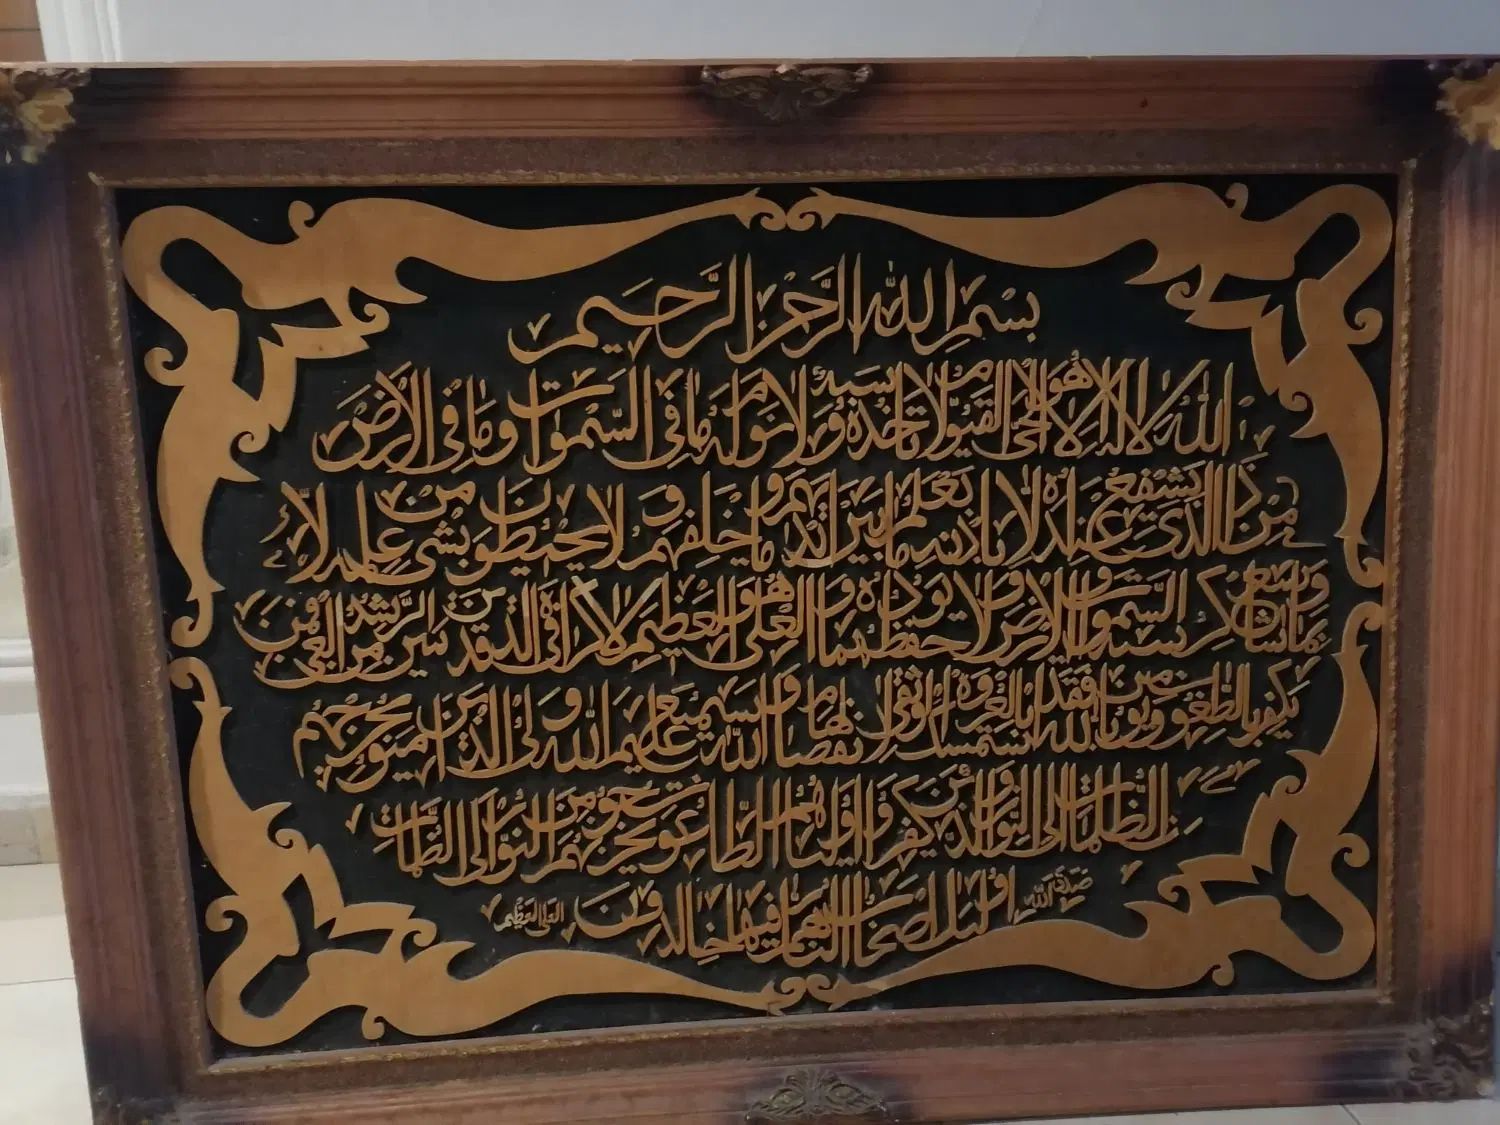 بسم الله الرحمن الرحيم
الله لا اله الا هو الحي القيوم لا تاخذه سنة ولا نوم له ما في السموات وما في الارض
من ذا الذي يشفع عنده الا باذنه يعلم ما بين ايديهم وما خلفهم ولا يحيطون بشيء من علمه الا
بما شاء وسع كرسيه السموات والارض ولا يؤده حفظهما وهو العلي العظيم لا اكراه في الدين قد تبين الرشد من الغي فمن
يكفر بالطغوت ويؤمن بالله فقد استمسك بالعروة الوثقى لا انفصام لها والله سميع عليم الله ولي الذين امنوا يخرجهم
من الظلمات الى النور والذين كفروا اولياؤهم الطاغوت يخرجونهم من النور الى الظلمات
صدق الله اولئك اصحاب النار هم فيها خالدون العلي العظيم